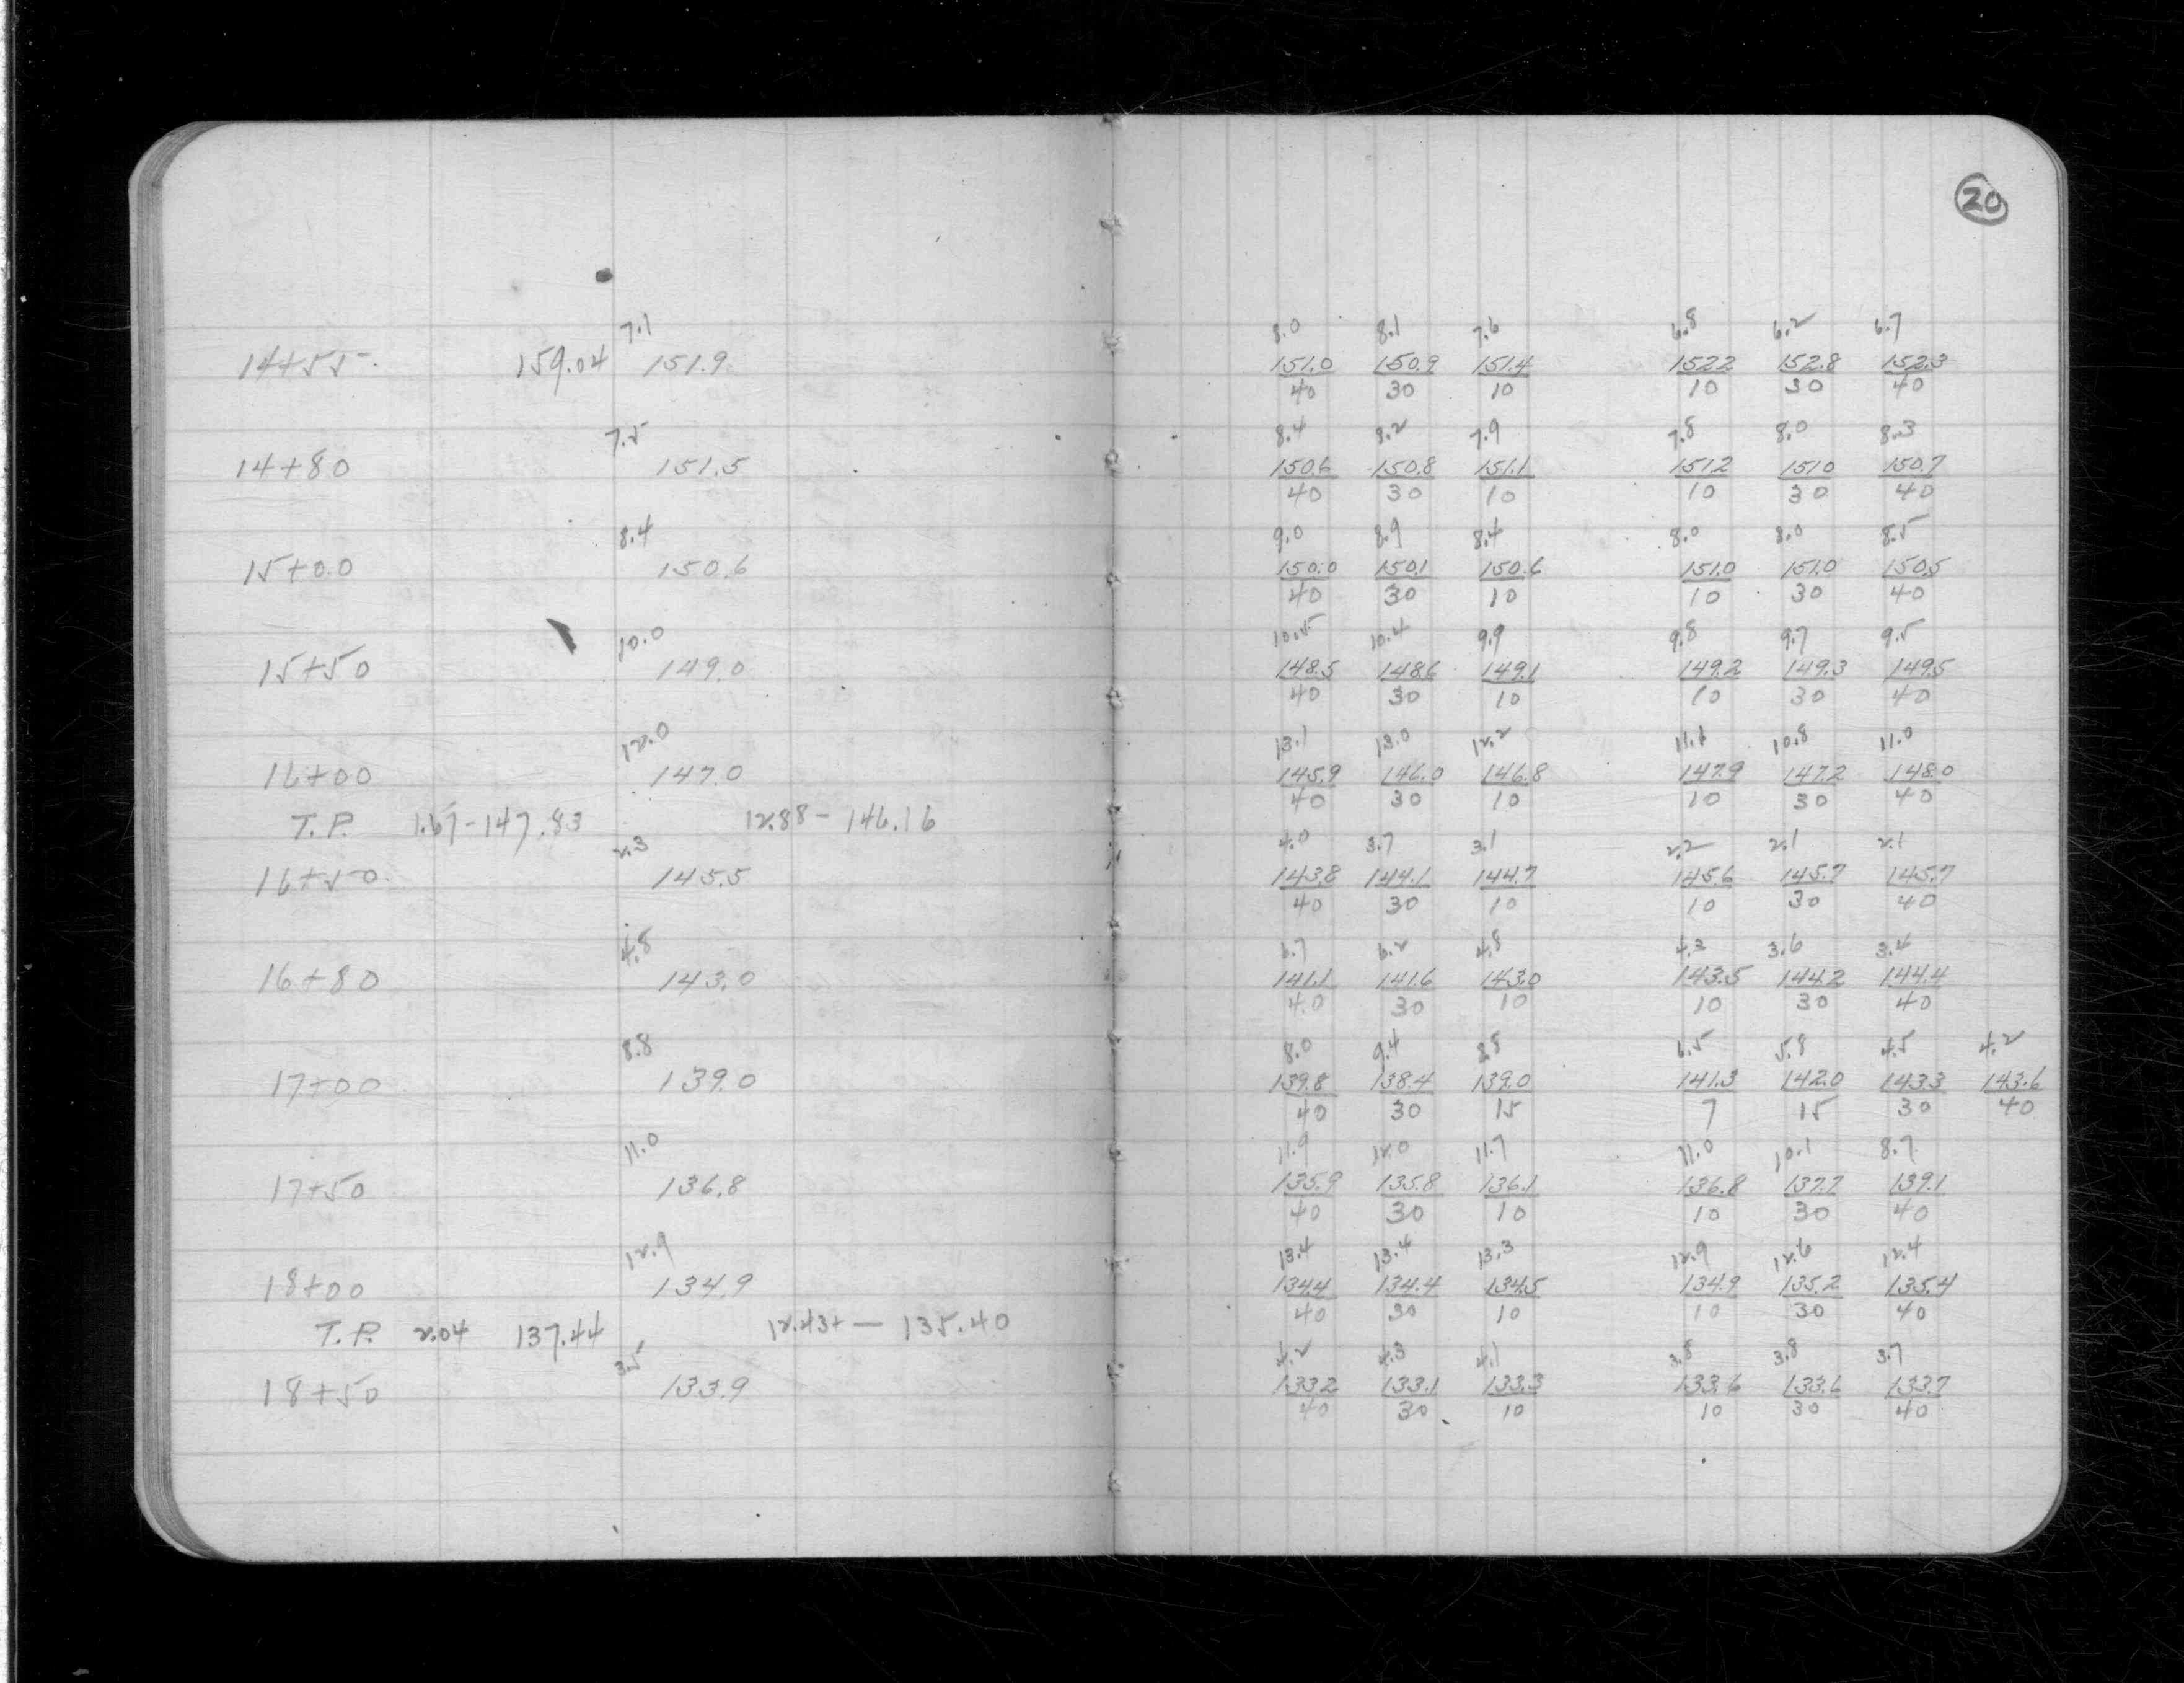 20
7.1 8.0 8.1 7.6 6.8 6.2 6.7
14+55 159.04 151.9 151.0 150.9 151.4 152.2 152.8 152.3
40 30 10 10 30 40
7.5 8.4 8.2 7.9 7.8 8.0 8.3
14+80 151.5 150.6 150.8 151.1 151.2 151.0 150.7
40 30 10 10 30 40
8.4 9.0 8.9 8.4 8.0 8.0 8.5
15+00 150.6 150.0 150.1 150.6 151.0 151.0 150.5
40 30 10 10 30 40
10.0 10.5 10.4 9.9 9.8 9.7 9.5
15+50 149.0 148.5 148.6 149.1 149.2 149.3 149.5
40 30 10 10 30 40
12.0 13.1 13.0 12.2 11.1 10.8 11.0
16+00 147.0 145.9 146.0 146.8 147.9 147.2 148.0
40 30 10 10 30 40
T.P. 1.67-147.83 12.88-146.16
2.3 4.0 3.7 3.1 2.2 2.1 2.1
16+50 145.5 143.8 144.1 144.7 145.6 145.7 145.7
40 30 10 10 30 40
4.8 6.7 6.2 4.8 4.3 3.6 3.4
16+80 143.0 141.1 141.6 143.0 143.5 144.2 144.4
40 30 10 10 30 40
8.8 8.0 9.4 8.8 6.5 5.8 4.5 4.2
17+00 139.0 139.8 138.4 139.0 141.3 142.0 143.3 143.6
40 30 15 7 15 30 40
11.0 11.9 12.0 11.7 11.0 10.1 8.7
17+50 136.8 135.9 135.8 136.1 136.8 137.7 139.1
40 30 10 10 30 40
12.9 13.4 13.4 13.3 12.9 12.6 12.4
18+00 134.9 134.4 134.4 134.5 134.9 135.2 135.4
40 30 10 10 30 40
T.P. 2.04 137.44 12.43+ — 135.40
3.5 4.2 4.3 4.1 3.8 3.8 3.7
18+50 133.9 133.2 133.1 133.3 133.6 133.6 133.7
40 30 10 10 30 40